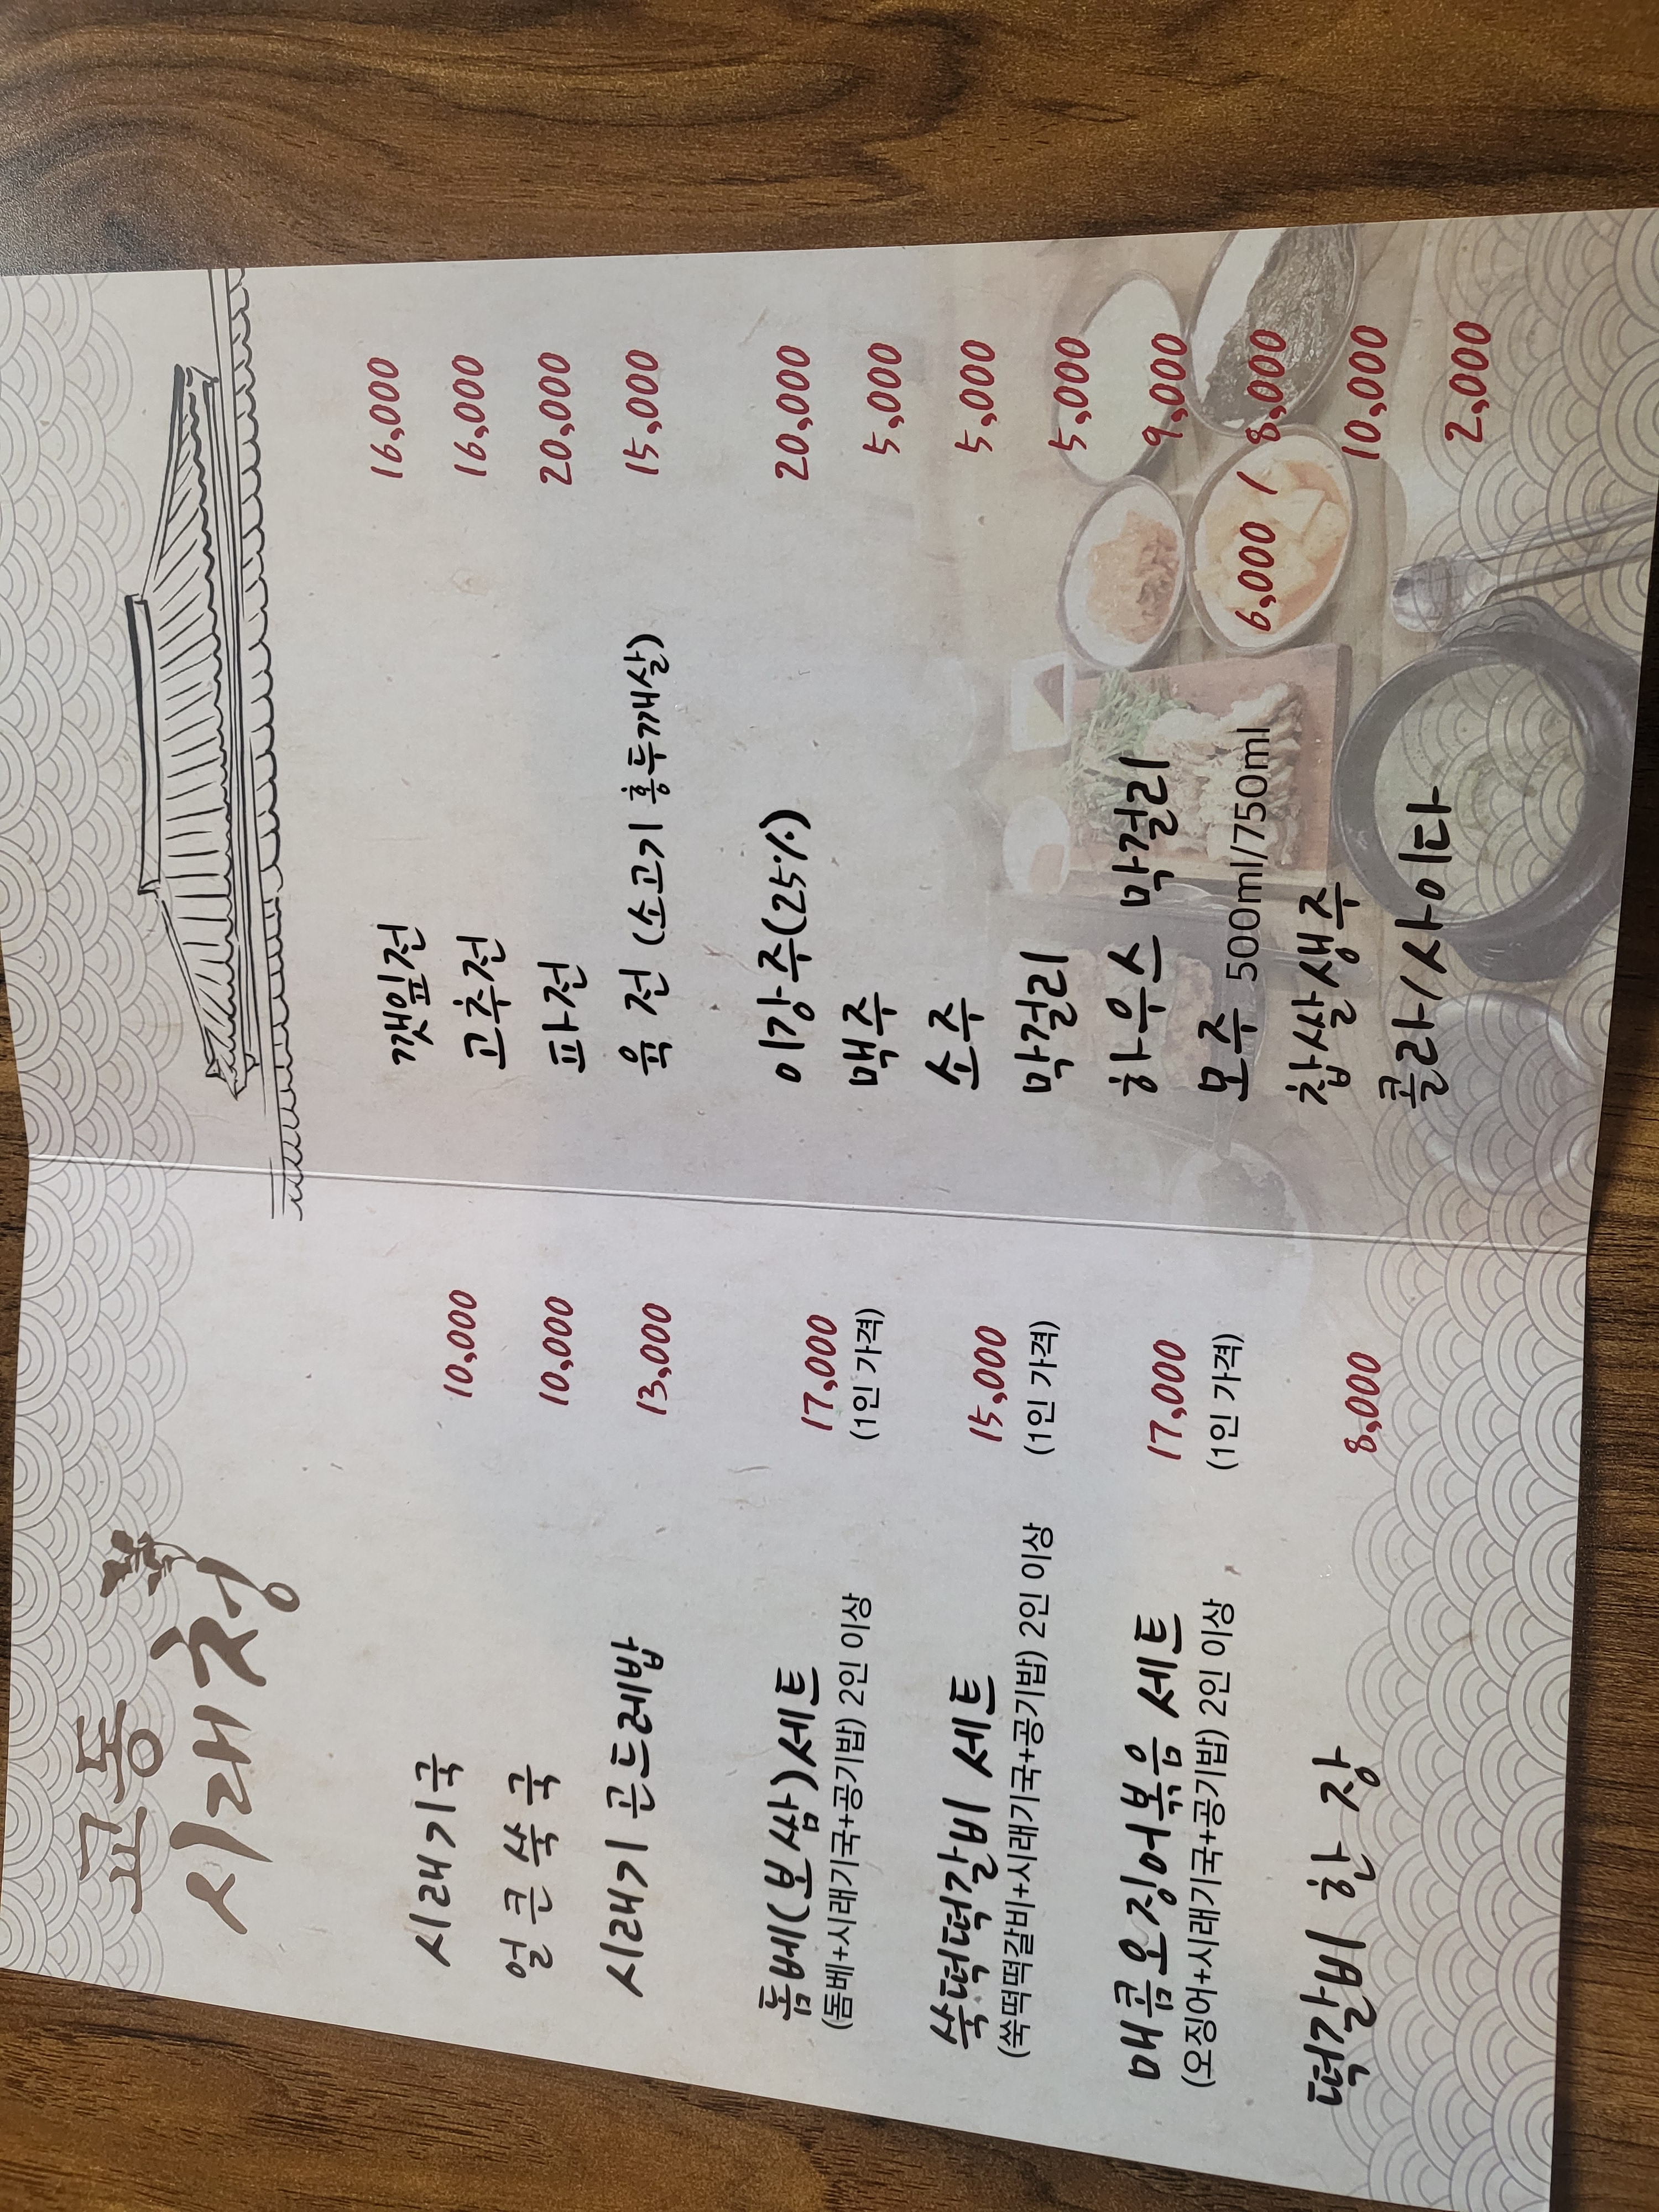 교동
시래청
시래기국 10,000
얼큰쑥국 10,000
시래기 곤드레밥 13,000
돔베(보쌈)세트 17,000
(돔베+시래기국+공기밥) 2인 이상 (1인 가격)
쑥떡떡갈비 세트 15,000
(쑥떡떡갈비+시래기국+공기밥) 2인 이상 (1인 가격)
매콤오징어볶음 세트 17,000
(오징어+시래기국+공기밥) 2인 이상 (1인 가격)
떡갈비 한 장 8,000
깻잎전 16,000
고추전 16,000
파전 20,000
육전 (소고기 홍두깨살) 15,000
이강주(25%) 20,000
맥주 5,000
소주 5,000
막걸리 5,000
하우스 막걸리 9,000
모주 500ml/750ml 6,000 / 8,000
찹쌀생주 10,000
콜라/사이다 2,000